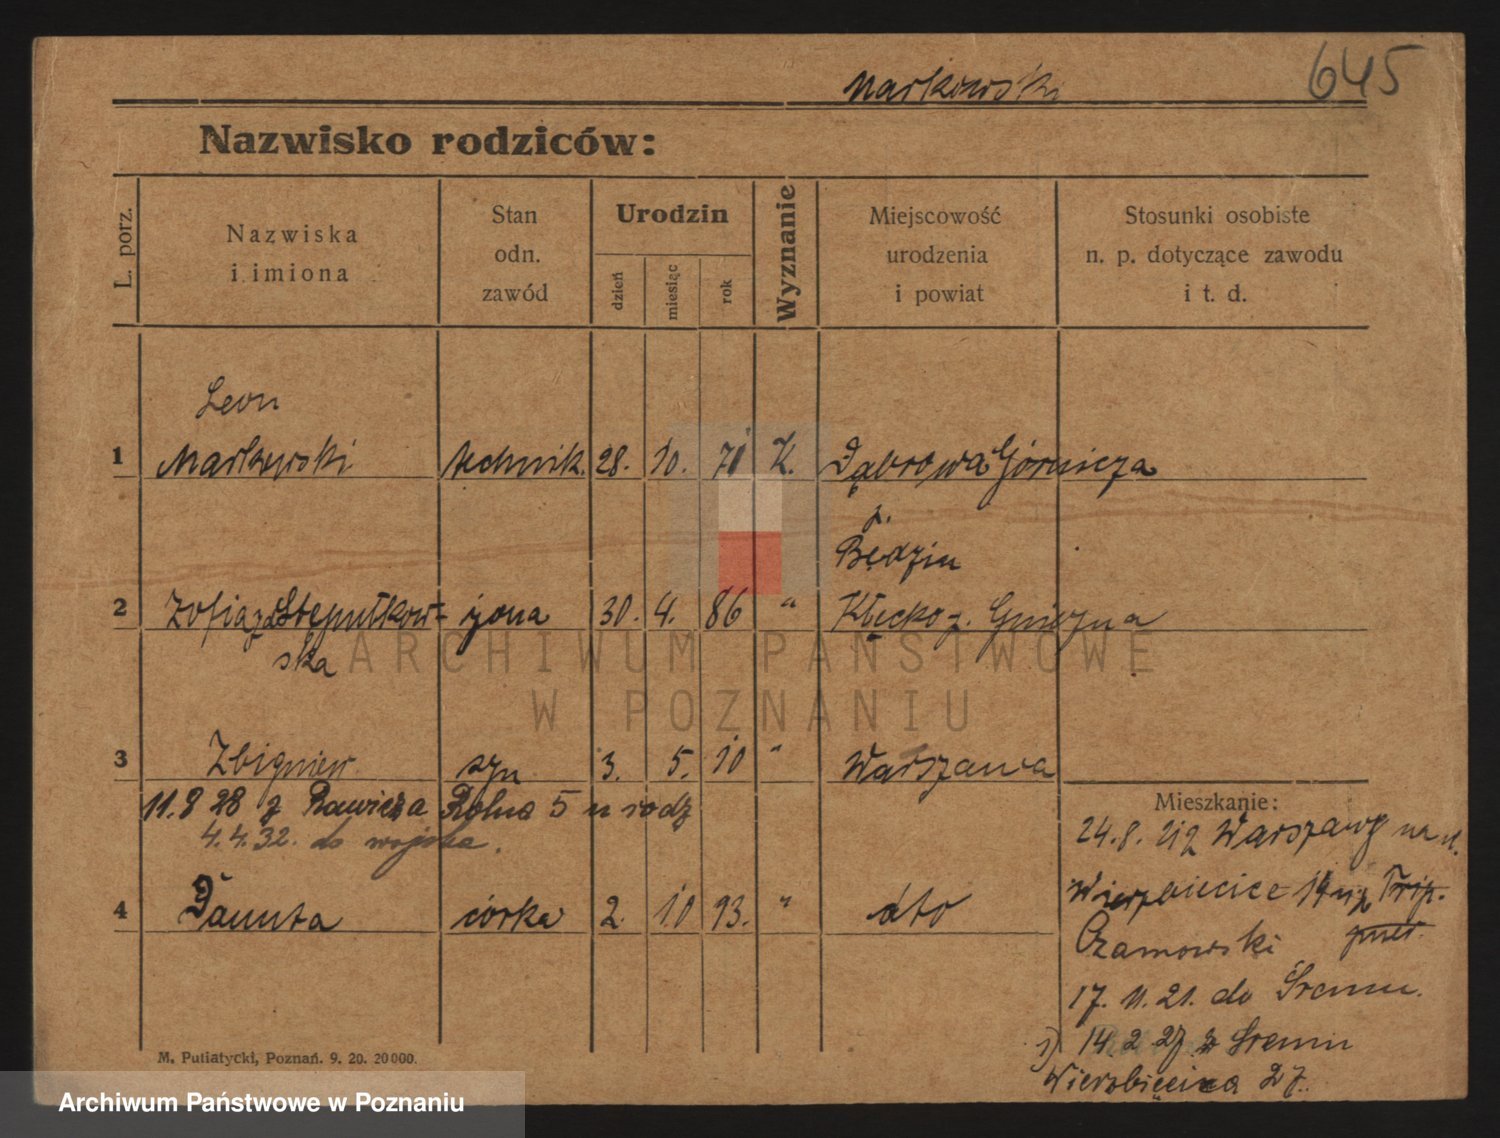 Markowski 645
Nazwisko rodziców:
L. porz.
Nazwiska
i imiona
Stan
odn.
zawód
Urodzin
dzień
miesiąc
rok
Wyznanie
Miejscowość
urodzenia
i powiat
Stosunki osobiste
n. p. dotyczące zawodu
i t. d.
Leon
1 Markowski technik. 28. 10. 71 K. Dąbrowa Górnicza
p.
Będzin
2 Zofia zd Stępułkow- żona 30. 4. 86 " Kłecko p. Gniezna
ska
3 Zbigniew syn 3. 5. 10 " Warszawa
11.8 28 z Rawicza Rolna 5 u rodz
4.4.32. do wojska.
4 Danuta córka 2. 10 93. " dto
Mieszkanie:
24.8. 21 z Warszawy
Wierzbięcice 19
Czarnowski
17. 11. 21. do Śremu.
14 2 27 z Śremu
Wierzbięcice 27.
M. Putiatycki, Poznań. 9. 20. 20000.
ARCHIWUM PAŃSTWOWE
W POZNANIU
Archiwum Państwowe w Poznaniu